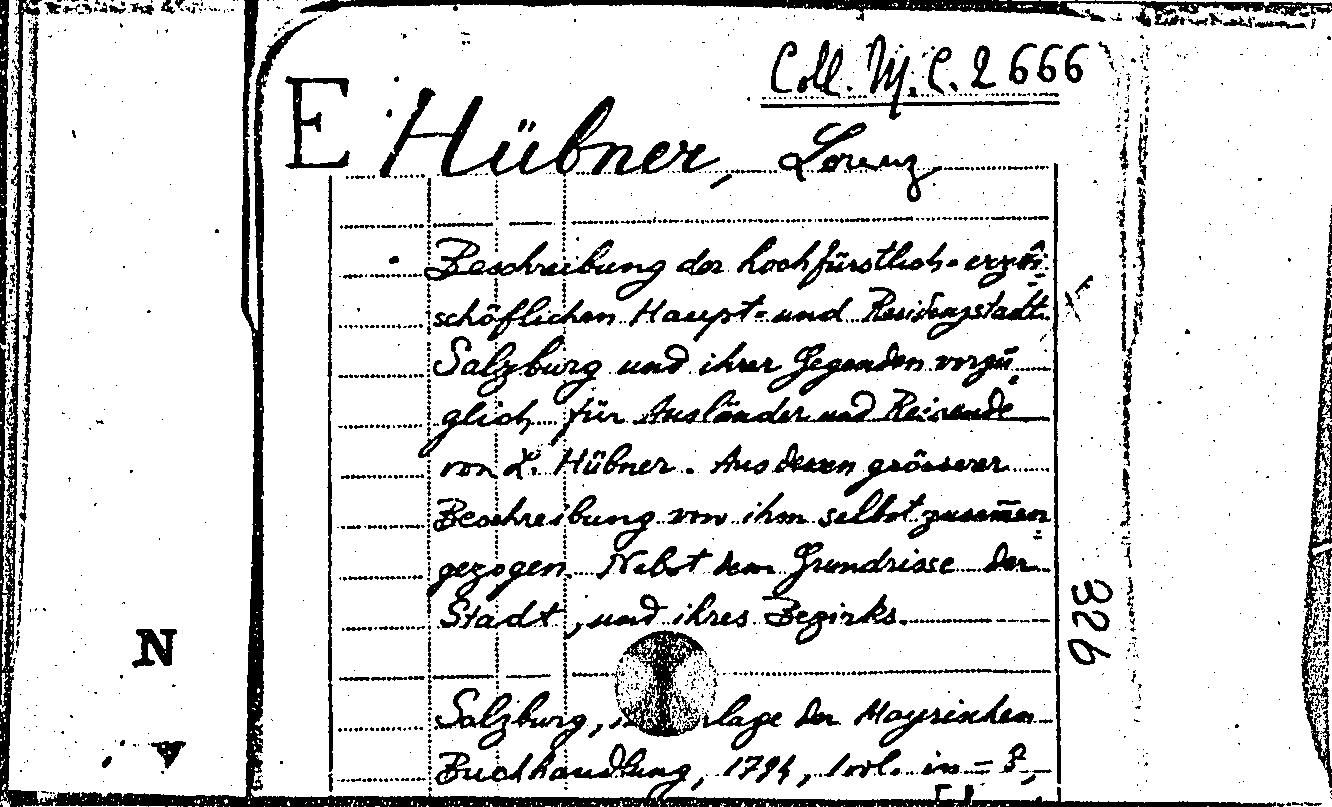 Coll. M. C. 2666
E Hübner, Lorenz
Beschreibung der hochfürstlich-erzbi-
schöflichen Haupt- und Residenzstadt
Salzburg und ihrer Gegenden vorzü-
glich für Ausländer und Reisende
von L. Hübner. Aus deren grösserer
Beschreibung von ihm selbst zusam̅en
gezogen. Nebst dem Grundrisse der
Stadt, und ihres Bezirks.
326
N
Salzburg, lage der Mayrischen
Buchhandlung, 1794, 1 vol. in-8,